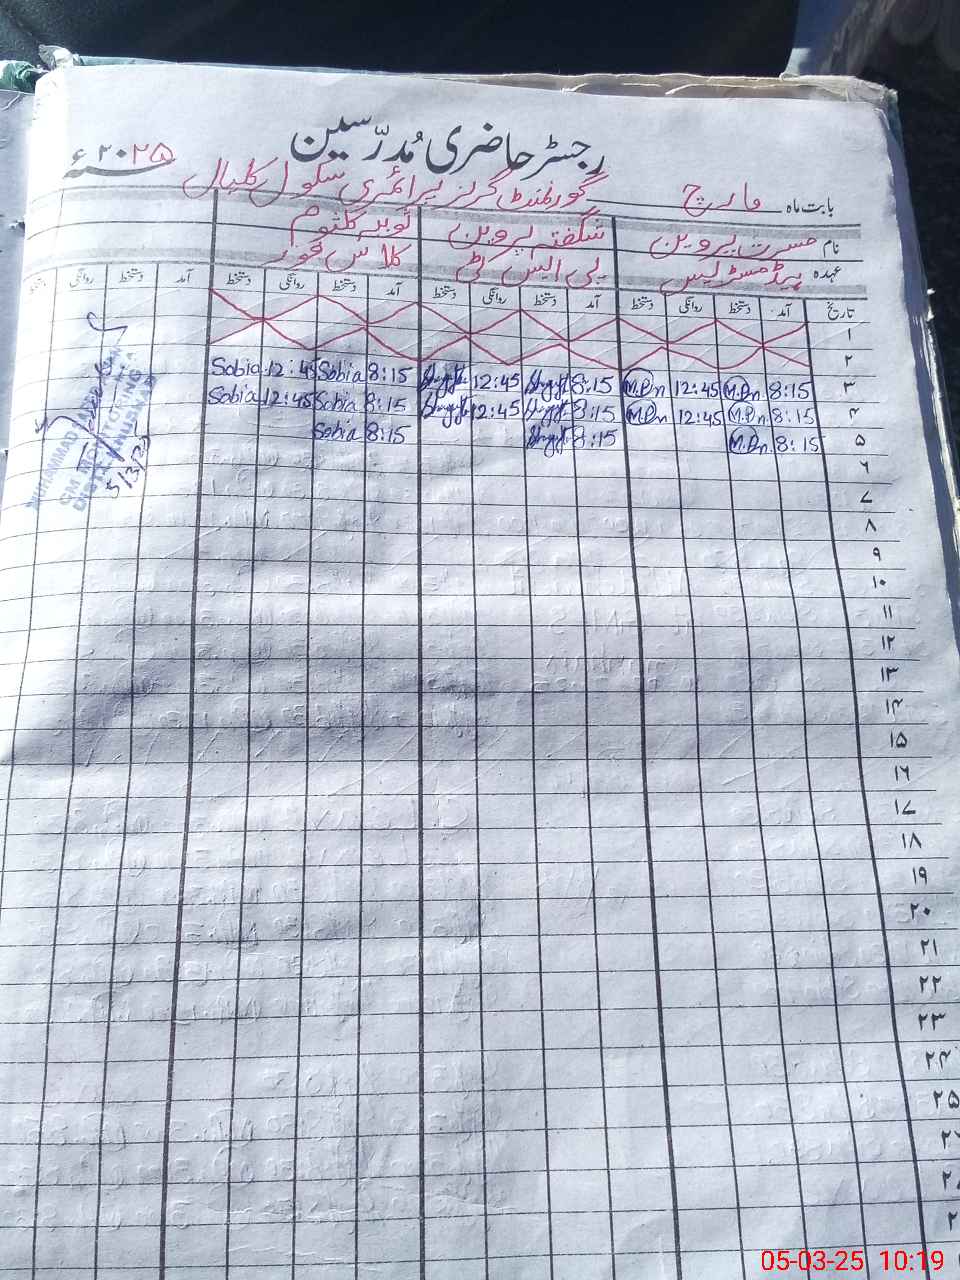 رجسٹر حاضری مُدرّسین
بابت ماہ مارچ گورنمنٹ گرلز پرائمری سکول کلیال ۲۰۲۵ء
نام مسرت پروین شگفتہ پروین ثوبیہ کلثوم
عہدہ ہیڈ مسٹریس پی ایس ٹی کلاس فور
تاریخ آمد دستخط روانگی دستخط آمد دستخط روانگی دستخط آمد دستخط روانگی دستخط آمد دستخط روانگی دستخط
۱
۲
۳ 8:15 M.Pn 12:45 M.Pn 8:15 12:45 8:15 Sobia 12:45 Sobia
۴ 8:15 M.Pn 12:45 M.Pn 8:15 12:45 8:15 Sobia 12:45 Sobia
۵ 8:15 M.Pn 8:15 8:15 Sobia
۶
۷
۸
۹
۱۰
۱۱
۱۲
۱۳
۱۴
۱۵
۱۶
۱۷
۱۸
۱۹
۲۰
۲۱
۲۲
۲۳
۲۴
۲۵
MUHAMMAD
5/3/25
05-03-25 10:19